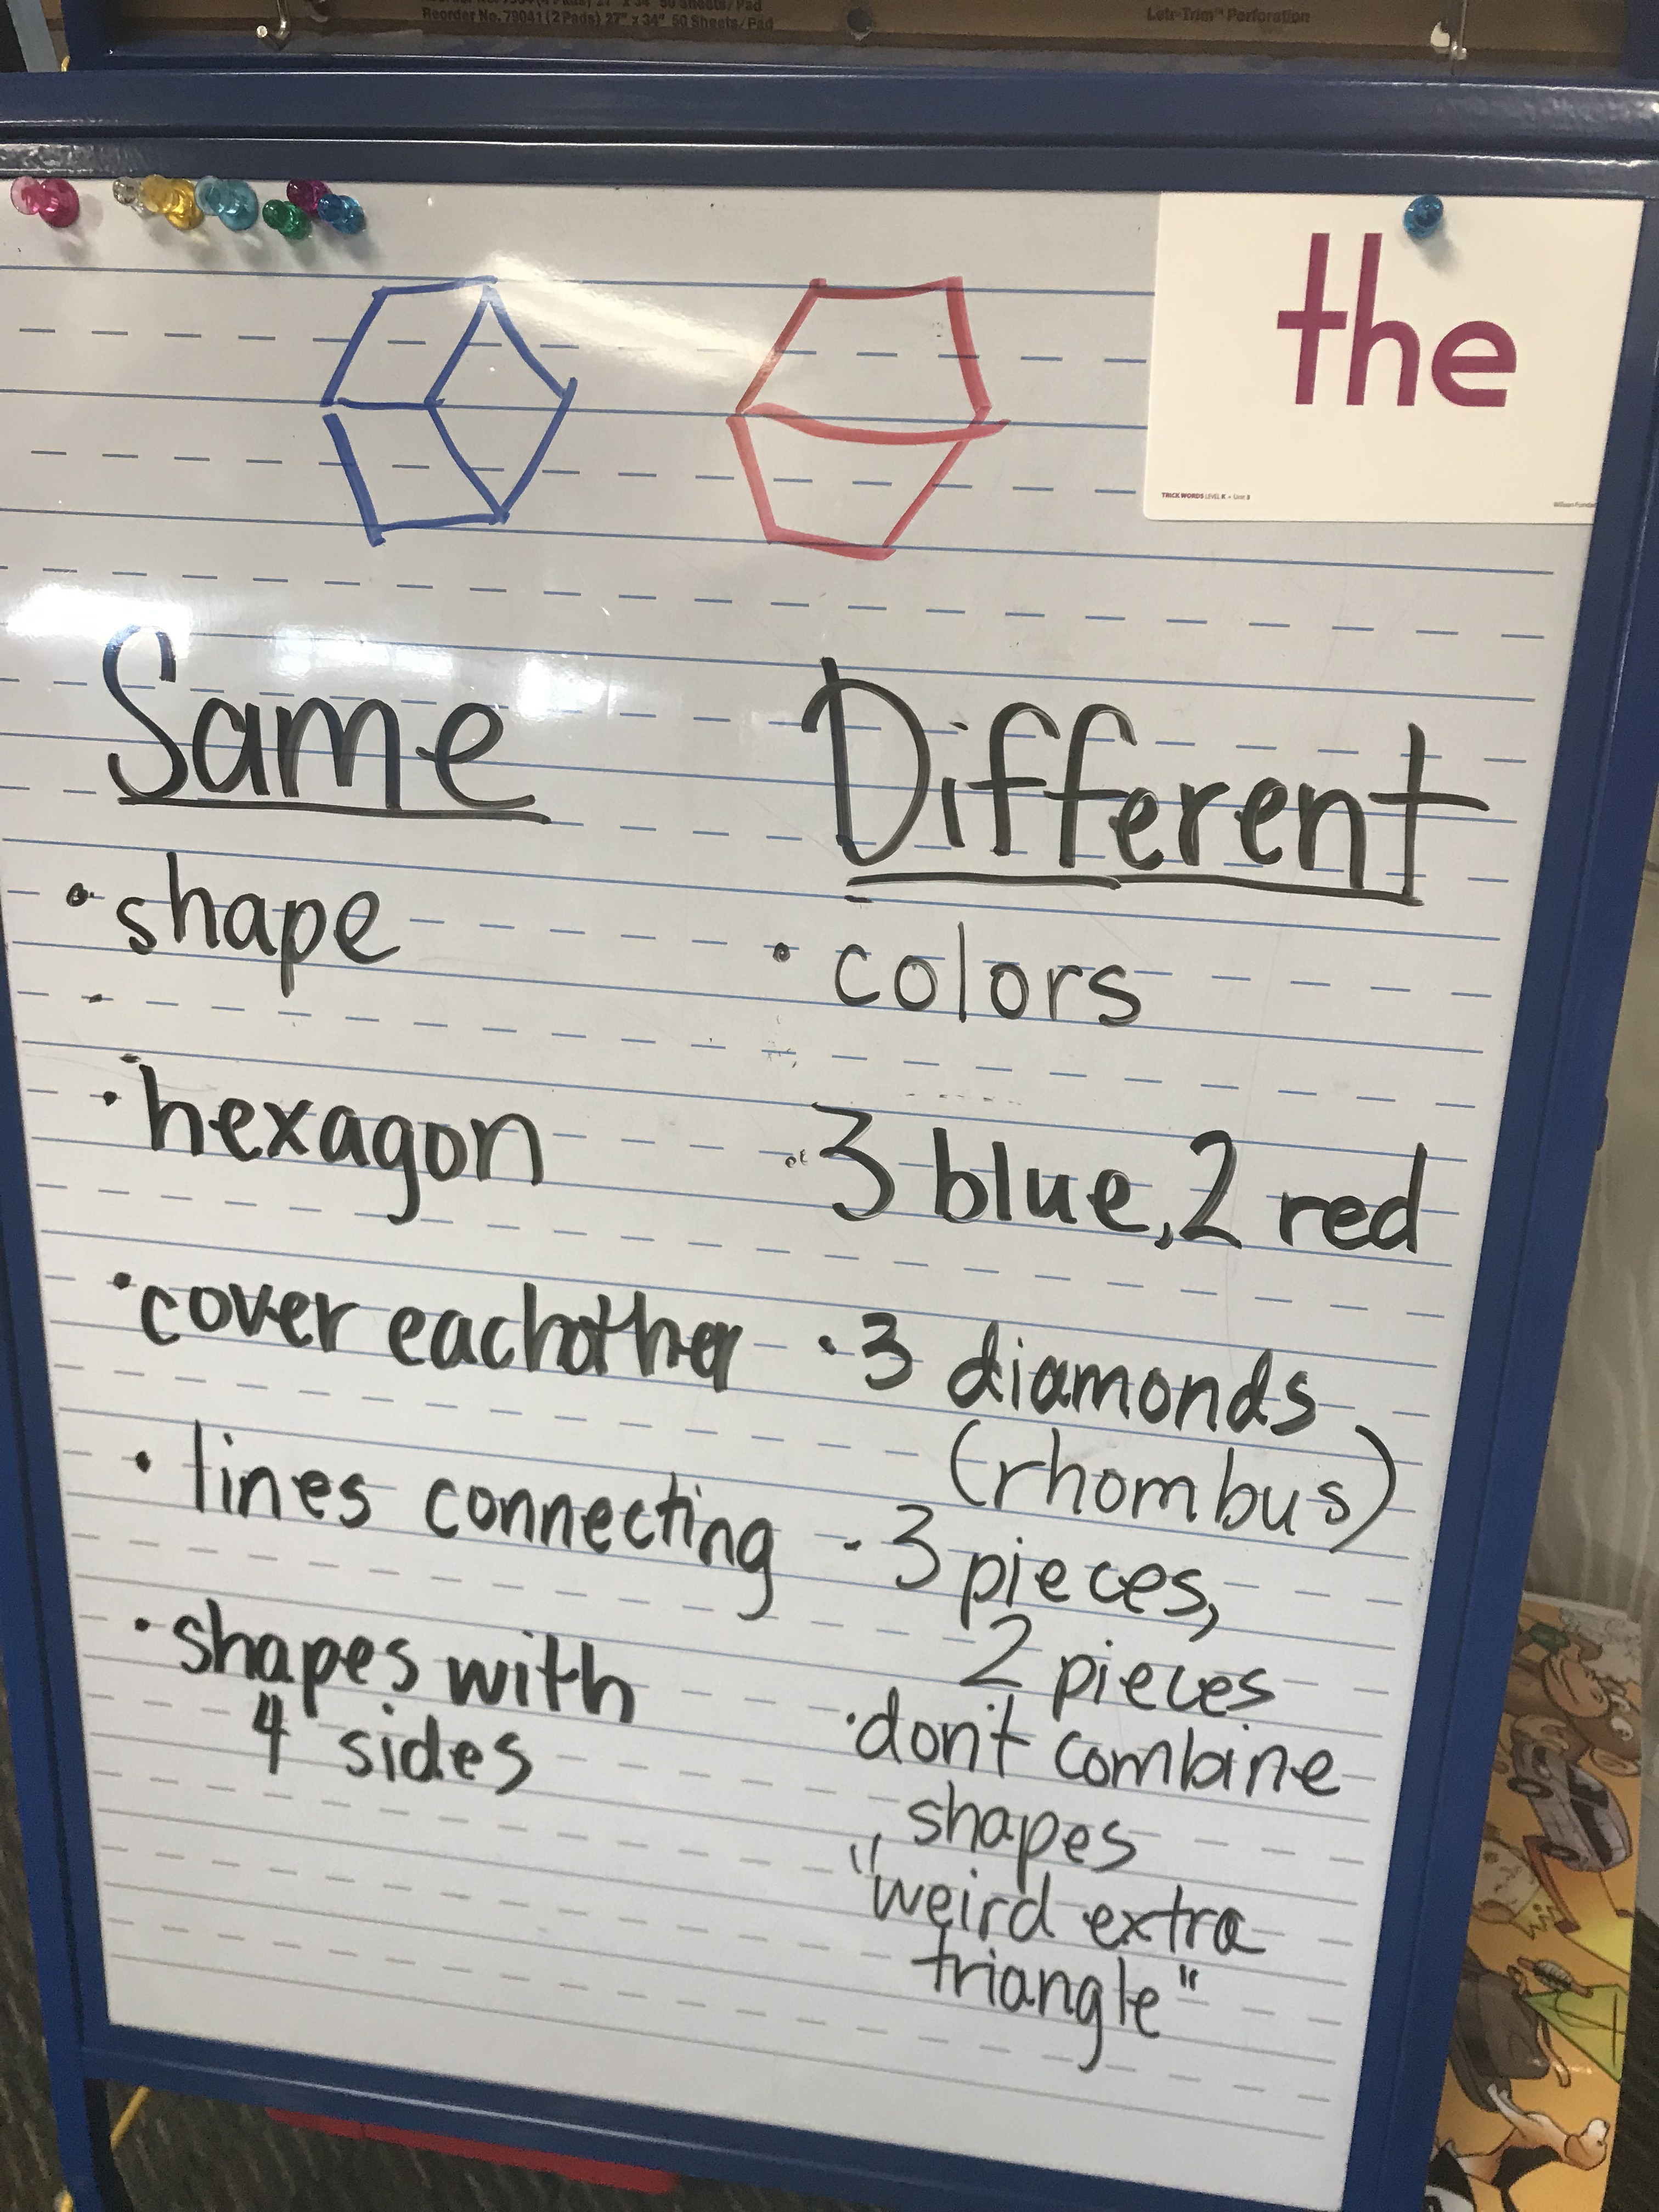 Reorder No. 79041 (2 Pads) 27" x 34" 50 Sheets/Pad
Perforation
the
TRICK WORDS LEVEL K • Unit 3
Same
• shape
• hexagon
• cover eachother
• lines connecting
• shapes with
4 sides
Different
• colors
3 blue, 2 red
• 3 diamonds
(rhombus)
- 3 pieces,
2 pieces
• don't combine
shapes
"weird extra
triangle"